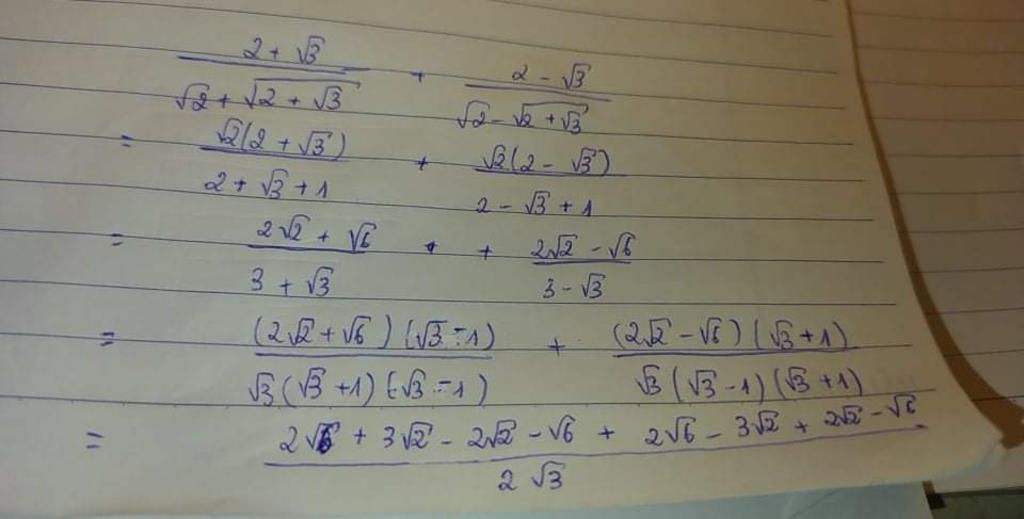 (2 + √3)/(√2 + √(2 + √3)) + (2 - √3)/(√2 - √(2 + √3))
= √2(2 + √3)/(2 + √3 + 1) + √2(2 - √3)/(2 - √3 + 1)
= (2√2 + √6)/(3 + √3) + (2√2 - √6)/(3 - √3)
= (2√2 + √6)(√3 - 1)/(√3(√3 + 1)(√3 - 1)) + (2√2 - √6)(√3 + 1)/(√3(√3 - 1)(√3 + 1))
= (2√6 + 3√2 - 2√2 - √6 + 2√6 - 3√2 + 2√2 - √6)/(2√3)